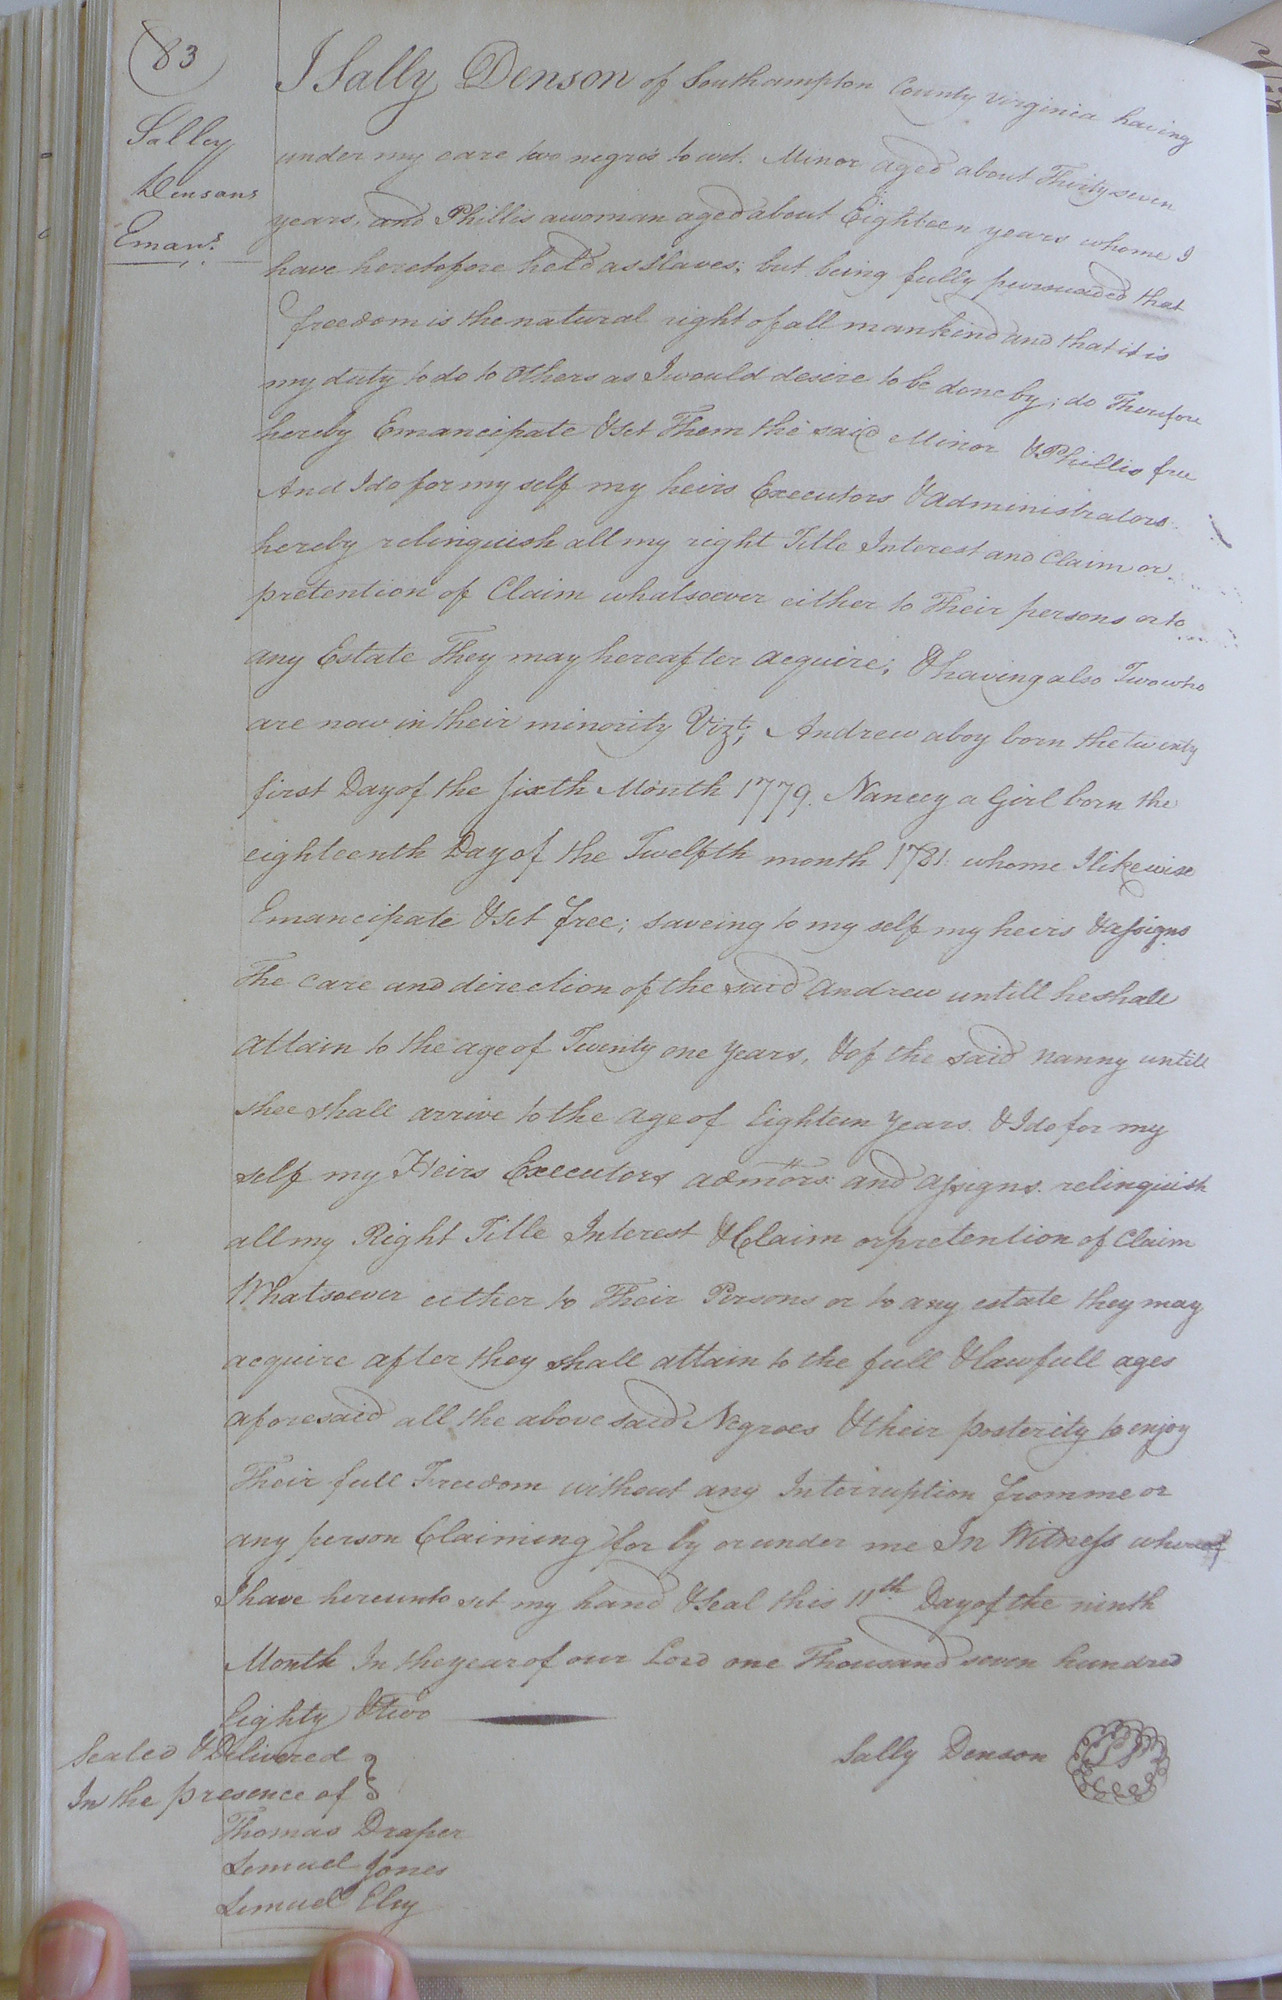 83
Salley
Densons
Eman:s
I Sally Denson of Southampton County Virginia having
under my care two negro's to wit. Minor aged about Thirty seven
years, and Phillis a woman aged about Eighteen years whome I
have heretofore held as slaves; but being fully persuaded that
freedom is the natural right of all mankind and that it is
my duty to do to others as I would desire to be done by; do Therefore
hereby Emancipate & set Them the said Minor & Phillis free
And I do for my self my heirs Executors & Administrators
hereby relinquish all my right Title Interest and Claim or
pretention of Claim whatsoever either to Their persons or to
any Estate They may hereafter acquire; & having also Two who
are now in their minority Vizt; Andrew a boy born the twenty
first Day of the sixth Month 1779. Nancey a Girl born the
eighteenth Day of the Twelfth month 1781. whome I likewise
Emancipate & set free; saveing to my self my heirs & assigns
The care and direction of the said Andrew untill he shall
attain to the age of Twenty one years, & of the said nanny untill
shee shall arrive to the age of Eighteen years. & I do for my
self my Heirs Executors admors and assigns. relinquish
all my Right Title Interest & Claim or pretention of Claim
Whatsoever either to Their Persons or to any estate they may
acquire after they shall attain to the full & lawfull ages
aforesaid all the above said Negroes & their posterity to enjoy
Their full Freedom without any Interruption from me or
any person Claiming for by or under me In Witness whereof
I have hereunto set my hand & seal this 11th Day of the ninth
Month In the year of our Lord one Thousand seven hundred
Eighty & two
Sealed & Delivered
In the presence of
Sally Denson
Thomas Draper
Lemuel Jones
Lemuel Eley